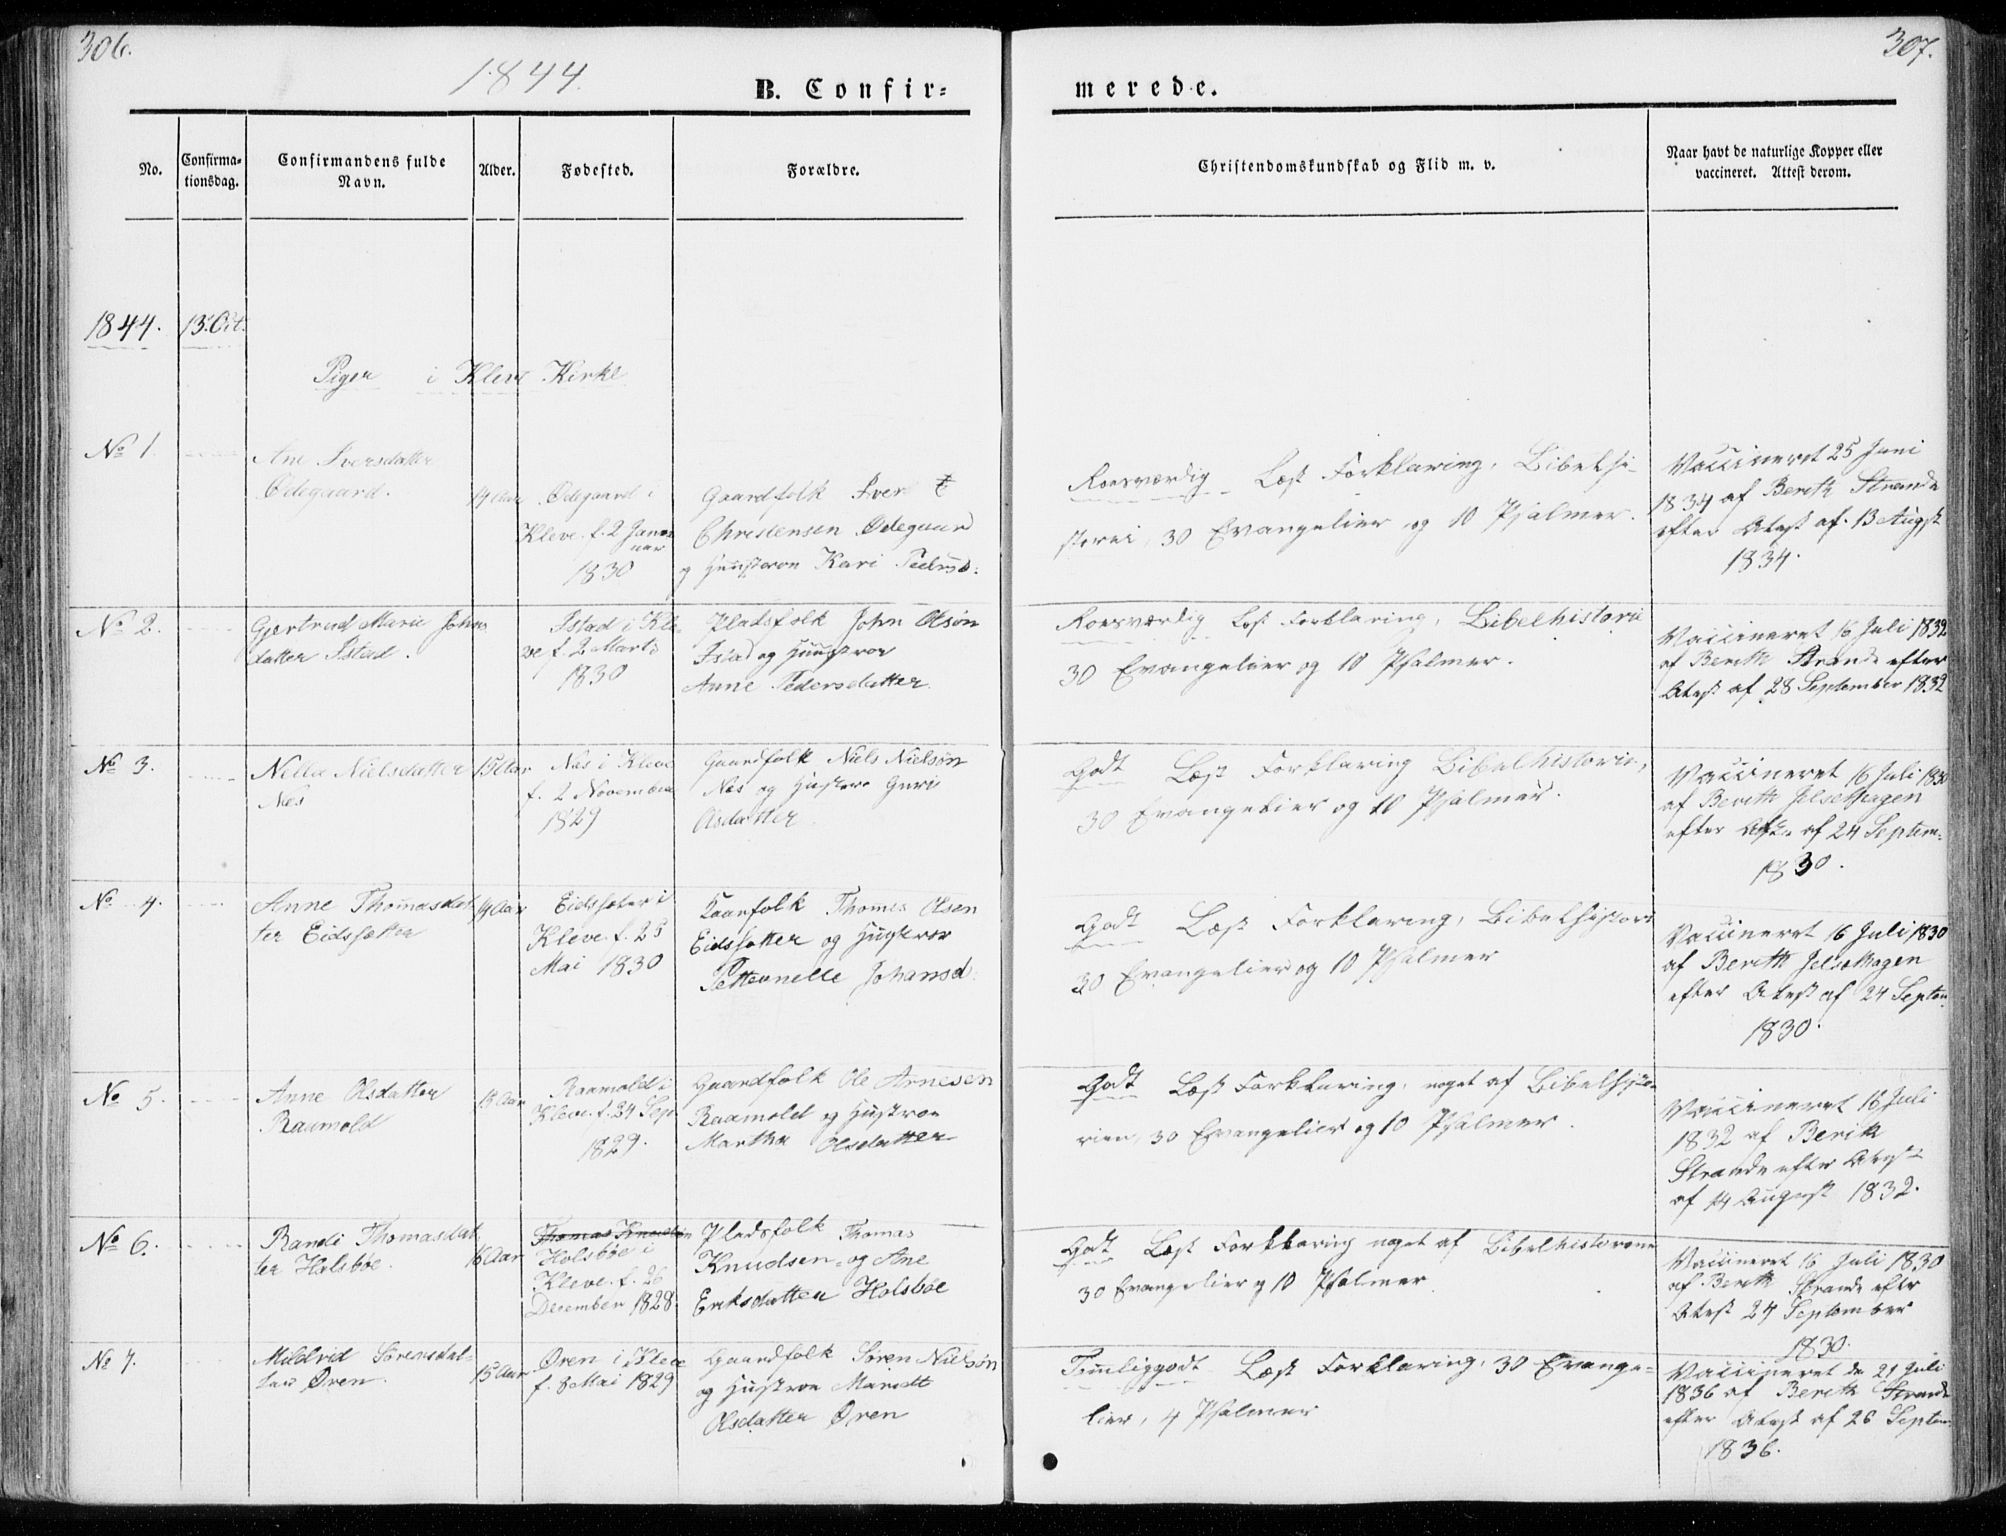 306.
307.
1844.
B. Confir=
merede.
No.
Confirma=
tionsdag.
Confirmandens fulde
Navn.
Alder.
Fødested.
Forældre.
Christendomskundskab og Flid m. v.
Naar havt de naturlige Kopper eller
vaccineret. Attest derom.
1844. 13. Oct.
Piger i Kleve Kirke
No 1.
Ane Iversdatter
Ødegaard.
14 Aar
Ødegaard i
Kleve. f. 2 Janu
uar
1830
Gaardfolk Iver
Christensen Ødegaard
og Hustroe Kari Pedersd:
Roesværdig Læst Forklaring, Bibelhi-
storei, 30 Evangelier og 10 Psalmer.
Vaccineret 25 Juni
1834 af Berith Strande
efter Atest af 13 Augst
1834.
No 2.
Gjertrud Marie Johns
datter Istad.
Istad i Kle
ve f. 2 Marts
1830
Pladsfolk John Olsøn
Istad og Hustroe
Anne Pedersdatter.
Roesværdig Læst Forklaring, Bibelhistorie
30 Evangelier og 10 Psalmer.
Vaccineret 16 Juli 1832
af Berith Strande efter
Atest af 28 September 1832
No 3.
Nille Nielsdatter
Næs
15 Aar
Næs i Kleve
f. 2 November
1829
Gaardfolk Niels Nielsøn
Næs og Hustroe Guri
Olsdatter
Godt Læst Forklaring Bibelhistorie,
30 Evangelier og 10 Psalmer.
Vaccineret 16 Juli 1830
af Berith Jelsethagen
efter Atest af 24 Septem-
1830.
No 4.
Anne Thomasdat
ter Eidssætter
14 Aar
Eidssæter i
Kleve. f. 25
Mai 1830
Gaarfolk Thomes Olsen
Eidssætter og Hustroe
Petternelle Johansd:
Godt Læst Forklaring, Bibelhistori
30 Evangelier og 10 Psalmer
Vaccineret 16 Juli 1830
af Berith Jelsethagen
efter Atest af 24 Septem
1830.
No 5.
Anne Olsdatter
Raamold
15 Aar
Raamold i
Kleve. f. 24 Sep.
1829.
Gaardfolk Ole Arnesen
Raamold og Hustroe
Martha Olsdatter
Godt Læst Forklaring, noget af Bibelhisto-
rien, 30 Evangelier og 10 Psalmer.
Vaccineret 16 Juli
1832 af Berith
Strande efter Atest
af 14 August 1832.
No 6.
Randi Thomasdat
ter Holsbøe.
16 Aar
Thomas Knudsen
Holsbøe i
Kleve. f. 26
December 1828.
Pladsfolk Thomas
Knudsen og Ane
Eriksdatter Holsbøe
Godt Læst Forklaring noget af Bibelhistorien
30 Evangelier og 10 Psalmer
Vaccineret 16 Juli 1830
af Berith Strande efter
Atest 24 September
1830.
No 7.
Mildrid Sørensdat-
ter Øren.
15 Aar
Øren i Kleve
f. 8 Mai 1829
Gaardfolk Søren Nielsøn
og Hustroe Marrdt
Olsdatter Øren
Temeliggodt Læst Forklaring, 30 Evange-
lier, 4 Psalmer
Vaccineret de 21 Juli
1836 af Berith Strande
efter Atest af 26 Septem
1836.